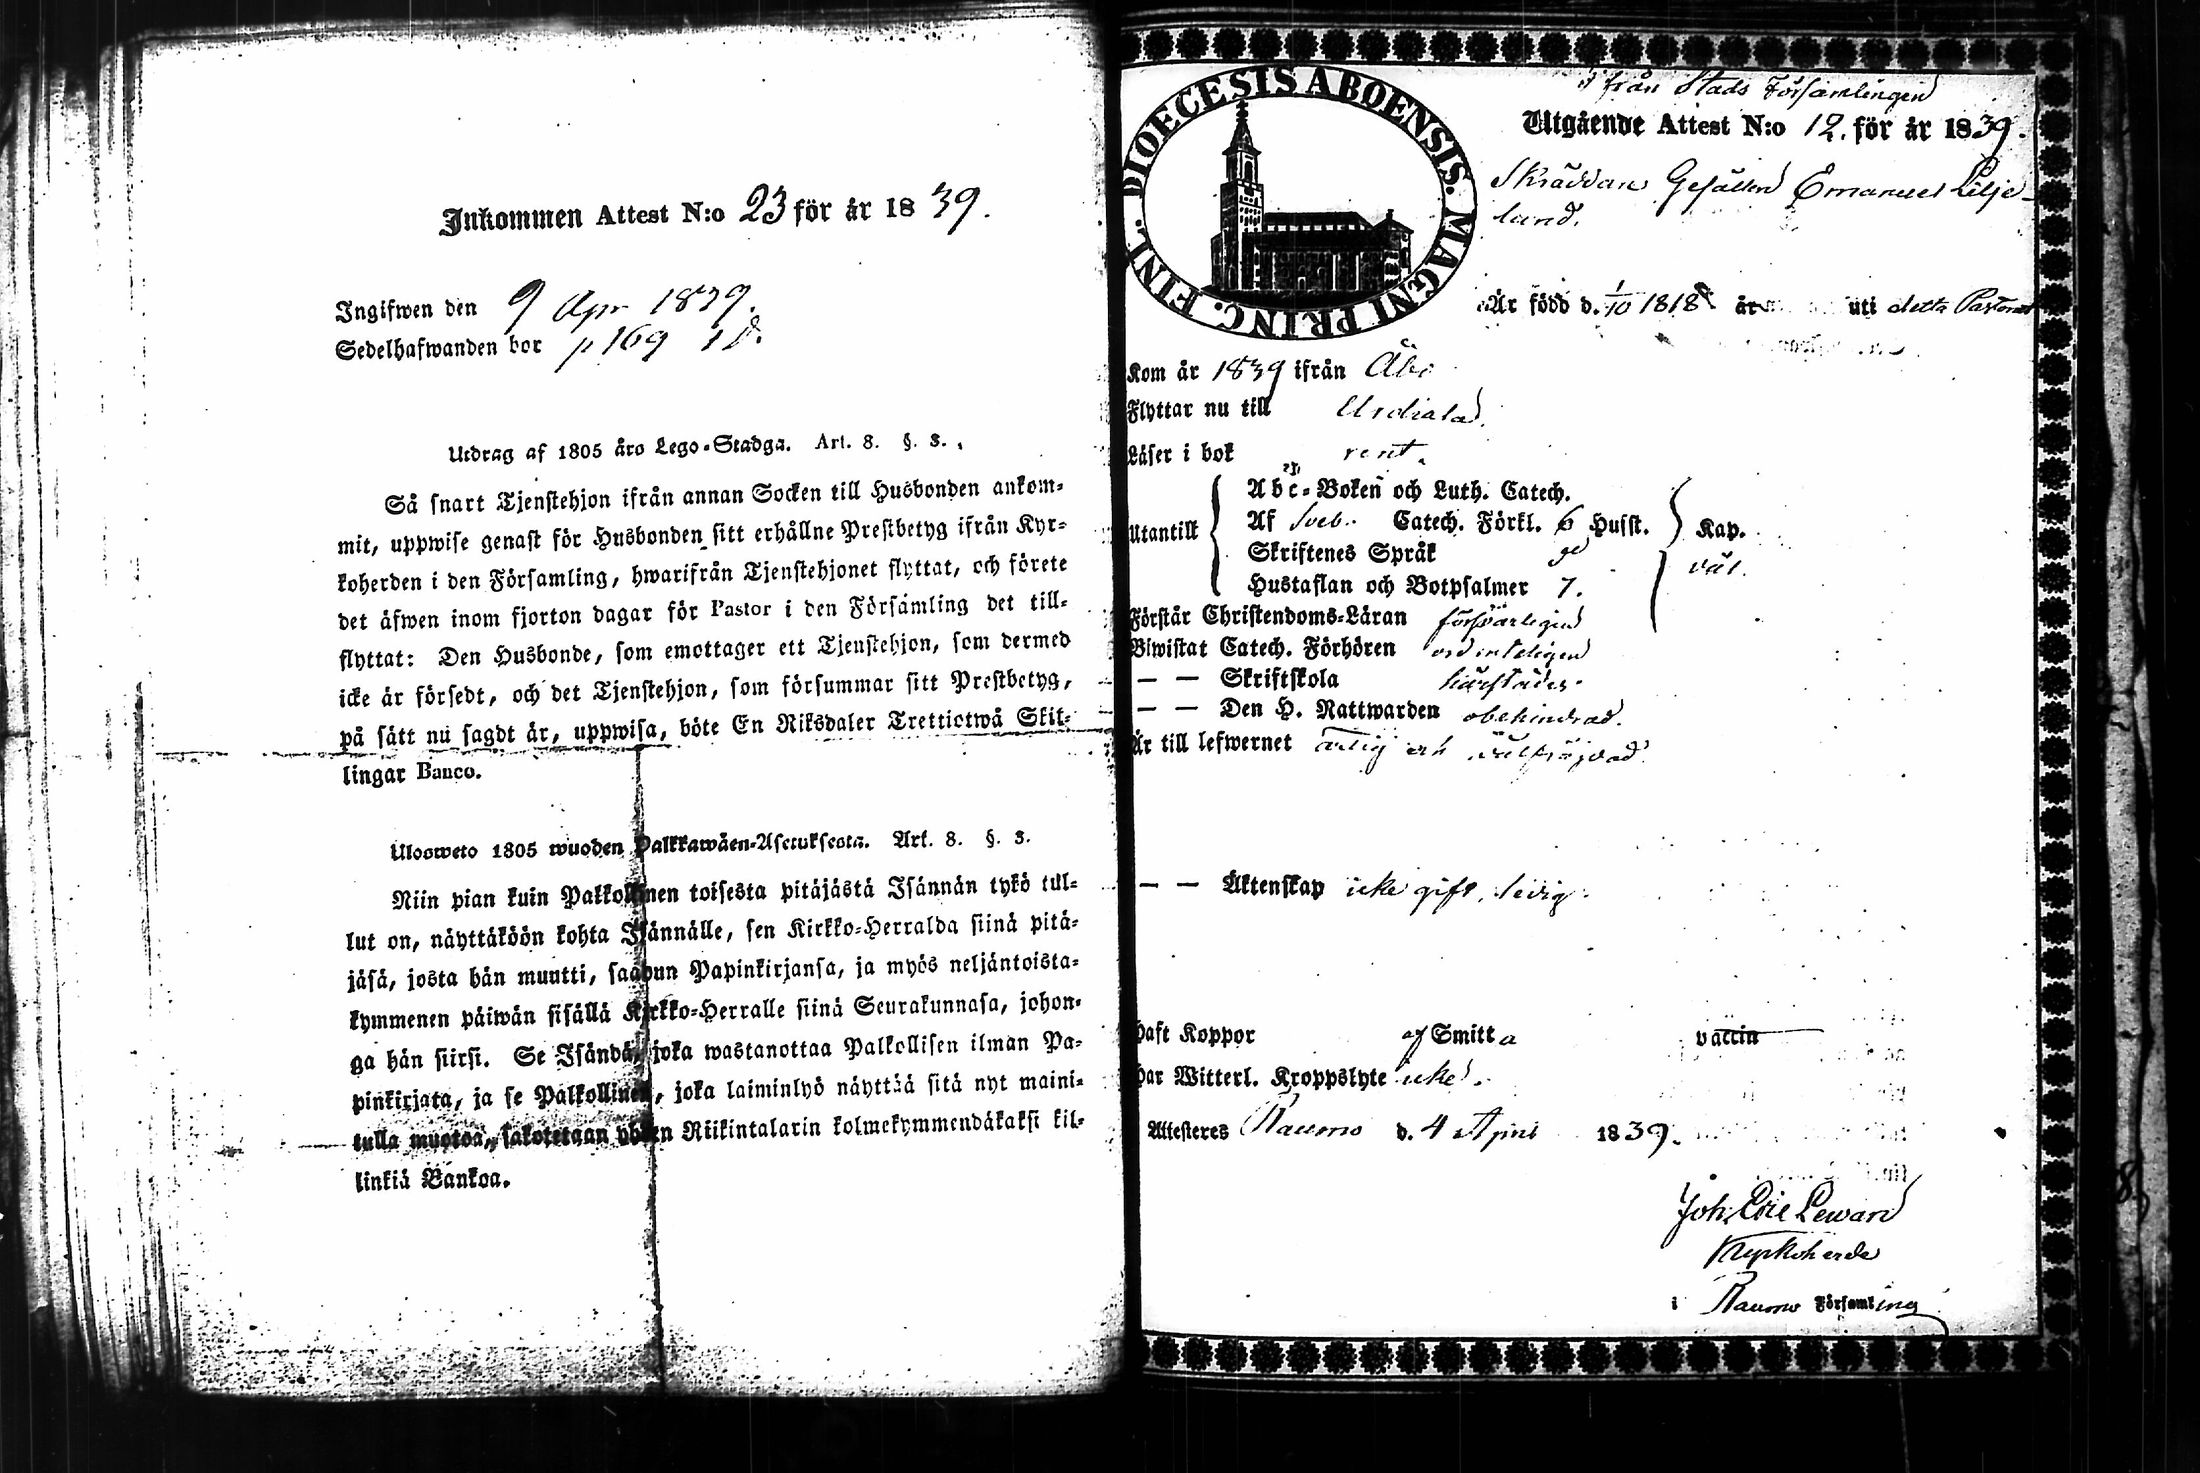 Inkommen Attest N:o 23 för år 1839.
Ingifwen den 9 Apr 1839.
Sedelhafwanden bor p 169
Utdrag af 1805 års Lego-Stadga. Art. 8. §. 3.
Så snart Tjenstehjon ifrån annan Socken till Husbonden ankom-
mit, uppwise genast för Husbonden sitt erhållne Prestbetyg ifrån Kyr-
koherden i den Församling, hwarifrån Tjenstehjonet flyttat, och förete
det äfwen inom fjorton dagar för Pastor i den Församling det till-
flyttat: Den Husbonde, som emottager ett Tjenstehjon, som dermed
icke är försedt, och det Tjenstehjon, som försummar sitt Prestbetyg,
på sätt nu sagdt är, uppwisa, böte En Riksdaler Trettiotwå Skil-
lingar Banco.
Ulosweto 1805 wuoden Palkkawäen-Asetuksesta. Art. 8. §. 3.
Niin pian kuin Palkollinen toisesta pitäjästä Isännän tykö tul-
lut on, näyttäköön kohta Isännälle, sen Kirkko-Herralda siinä pitä-
jäsä, josta hän muutti, saadun Papinkirjansa, ja myös neljäntoista-
kymmenen päiwän sisällä Kirkko-Herralle siinä Seurakunnasa, johon-
ga hän siirsi. Se Isändä, joka wastanottaa Palkollisen ilman Pa-
pinkirjata, ja se Palkollinen, joka laiminlyö näyttää sitä nyt maini-
tulla muotoa, sakotetaan yhden Riikintalarin kolmekymmendäkaksi kil-
linkiä Bankoa.
DIOECESIS ABOENSIS. MAGNI PRINC. FINL.
ifrån Stads Församlingen
Utgående Attest N:o 12. för år 1839.
Skräddare Gesällen Emanuel Lilje-
lund.
Är född d. 1/10 1818 år uti detta Pastorat
Kom år 1839 ifrån Åbo
Flyttar nu till Urdiala.
Läser i bok rent.
Utantill
Abc-Boken och Luth. Catech.
Af Sveb. Catech. Förkl. 6 Husst. Kap.
Skriftenes Språk väl.
Hustaflan och Botpsalmer 7.
Förstår Christendoms-Läran försvarligen
Biwistat Catech. Förhören ordenteligen
— — Skriftskola härstädes.
— — Den H. Nattwarden obehindrad.
Är till lefwernet ärlig och välfräjdad
— — Äktenskap icke gift, ledig.
Haft Koppor af Smitta vaccin
Har Witterl. Kroppslyte icke.
Attesteres Raumo d. 4 April 1839.
Joh. Eric Lewan
Kyrkoherde
i Raumo Församling